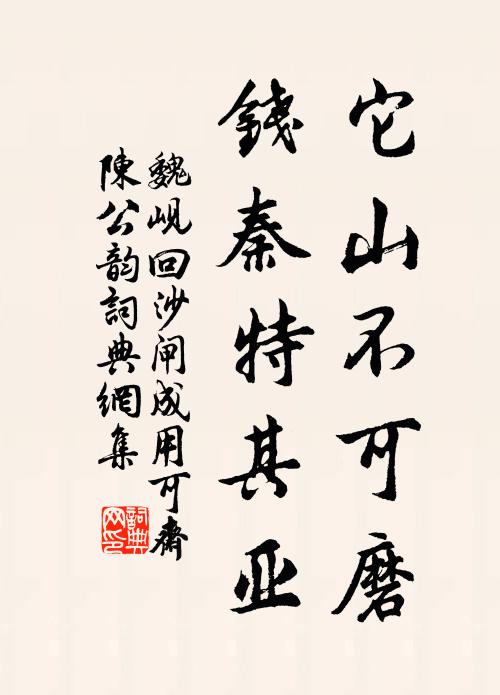 它山不可磨
錢秦特其亚
魏峴回沙闸成用可齋
陳公韵詞典網集
詞典网印